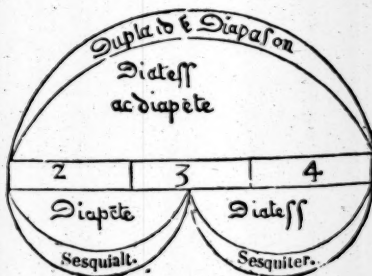 Dupla id ē Diapason
Diatess
ac diapēte
2 3 4
Diapēte Diatess
Sesquialt. Sesquiter.